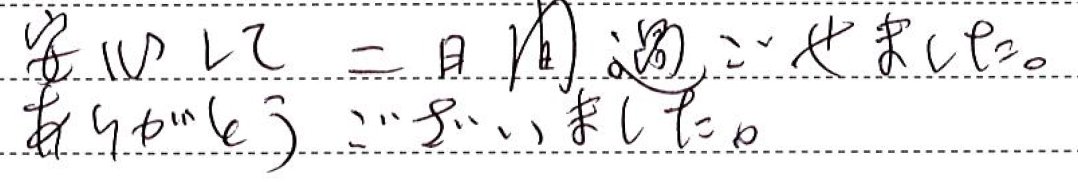 安心して二日間過ごせました。
ありがとうございました。